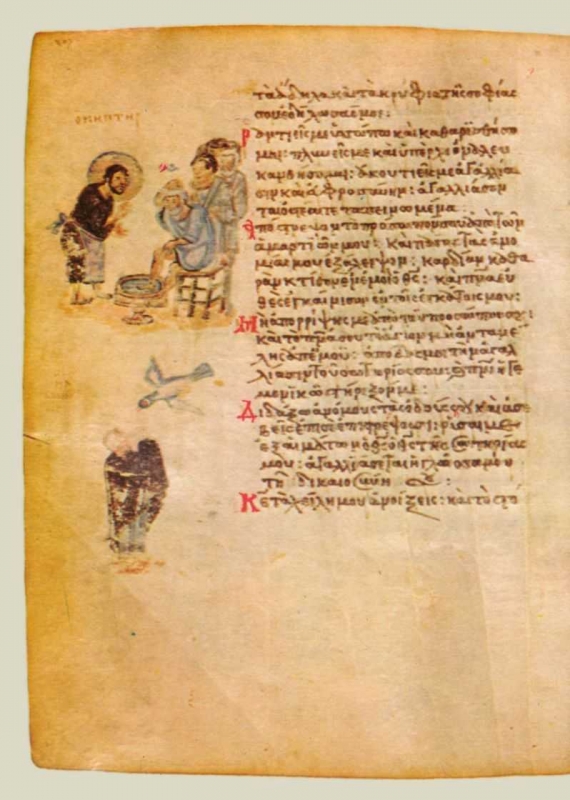 Ο ΝΙΠΤΗΡ
τὰ ἄδηλα καὶ τὰ κρύφια τῆς σοφίας
σου ἐδήλωσάς μοι:
Ραντιεῖς με ὑσσώπω καὶ καθαρισθήσο
μαι: πλυνεῖς με καὶ ὑπὲρ χιόνα λευ
κανθήσομαι: ἀκουτιεῖς με ἀγαλλία
σιν καὶ εὐφροσύνην: ἀγαλλιάσον
ται ὀστέα τεταπεινωμένα:
Ἀπόστρεψον τὸ πρόσωπόν σου ἀπὸ τῶν
ἁμαρτιῶν μου: καὶ πάσας τὰς ἀνο
μίας μου ἐξάλειψον: καρδίαν καθα
ρὰν κτίσον ἐν ἐμοὶ ὁ θς: καὶ πνα εὐ
θὲς ἐγκαίνισον ἐν τοῖς ἐγκάτοις μου:
Μὴ ἀπορρίψης με ἀπὸ τοῦ προσώπου σου:
καὶ τὸ πνα σου τὸ ἅγιον μὴ ἀντανέ
λης ἀπ' ἐμοῦ: ἀπόδος μοι τὴν ἀγαλ
λίασιν τοῦ σωτηρίου σου: πνι ἡγε
μονικῶ στήριξόν με:
Διδάξω ἀνόμους τὰς ὁδούς σου καὶ ἀσε
βεῖς ἐπὶ σὲ ἐπιστρέψουσι: ρῦσαί με
ἐξ αἱμάτων ὁ θς ὁ θς τῆς σωτηρίας
μου: ἀγαλλιάσεται ἡ γλῶσσά μου
τὴν δικαιοσύνην σου:
Κε τὰ χείλη μου ἀνοίξεις: καὶ τὸ στό